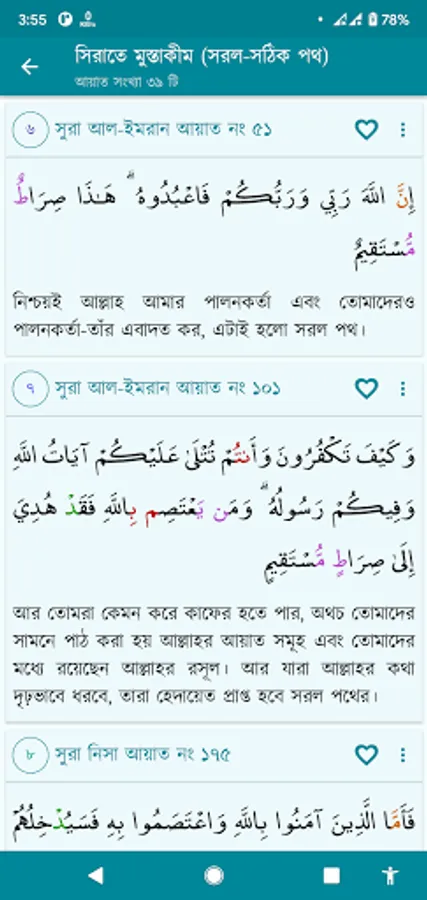 3:55
78%
সিরাতে মুস্তাকীম (সরল-সঠিক পথ)
আয়াত সংখ্যা ৩৯ টি
৬ সুরা আল-ইমরান আয়াত নং ৫১
إِنَّ اللَّهَ رَبِّي وَرَبُّكُمْ فَاعْبُدُوهُ ۗ هَـٰذَا صِرَاطٌ
مُّسْتَقِيمٌ
নিশ্চয়ই আল্লাহ আমার পালনকর্তা এবং তোমাদেরও
পালনকর্তা-তাঁর এবাদত কর, এটাই হলো সরল পথ।
৭ সুরা আল-ইমরান আয়াত নং ১০১
وَكَيْفَ تَكْفُرُونَ وَأَنتُمْ تُتْلَىٰ عَلَيْكُمْ آيَاتُ اللَّهِ
وَفِيكُمْ رَسُولُهُ ۗ وَمَن يَعْتَصِم بِاللَّهِ فَقَدْ هُدِيَ
إِلَىٰ صِرَاطٍ مُّسْتَقِيمٍ
আর তোমরা কেমন করে কাফের হতে পার, অথচ তোমাদের
সামনে পাঠ করা হয় আল্লাহর আয়াত সমূহ এবং তোমাদের
মধ্যে রয়েছেন আল্লাহর রসূল। আর যারা আল্লাহর কথা
দৃঢ়ভাবে ধরবে, তারা হেদায়েত প্রাপ্ত হবে সরল পথের।
৮ সুরা নিসা আয়াত নং ১৭৫
فَأَمَّا الَّذِينَ آمَنُوا بِاللَّهِ وَاعْتَصَمُوا بِهِ فَسَيُدْخِلُهُمْ